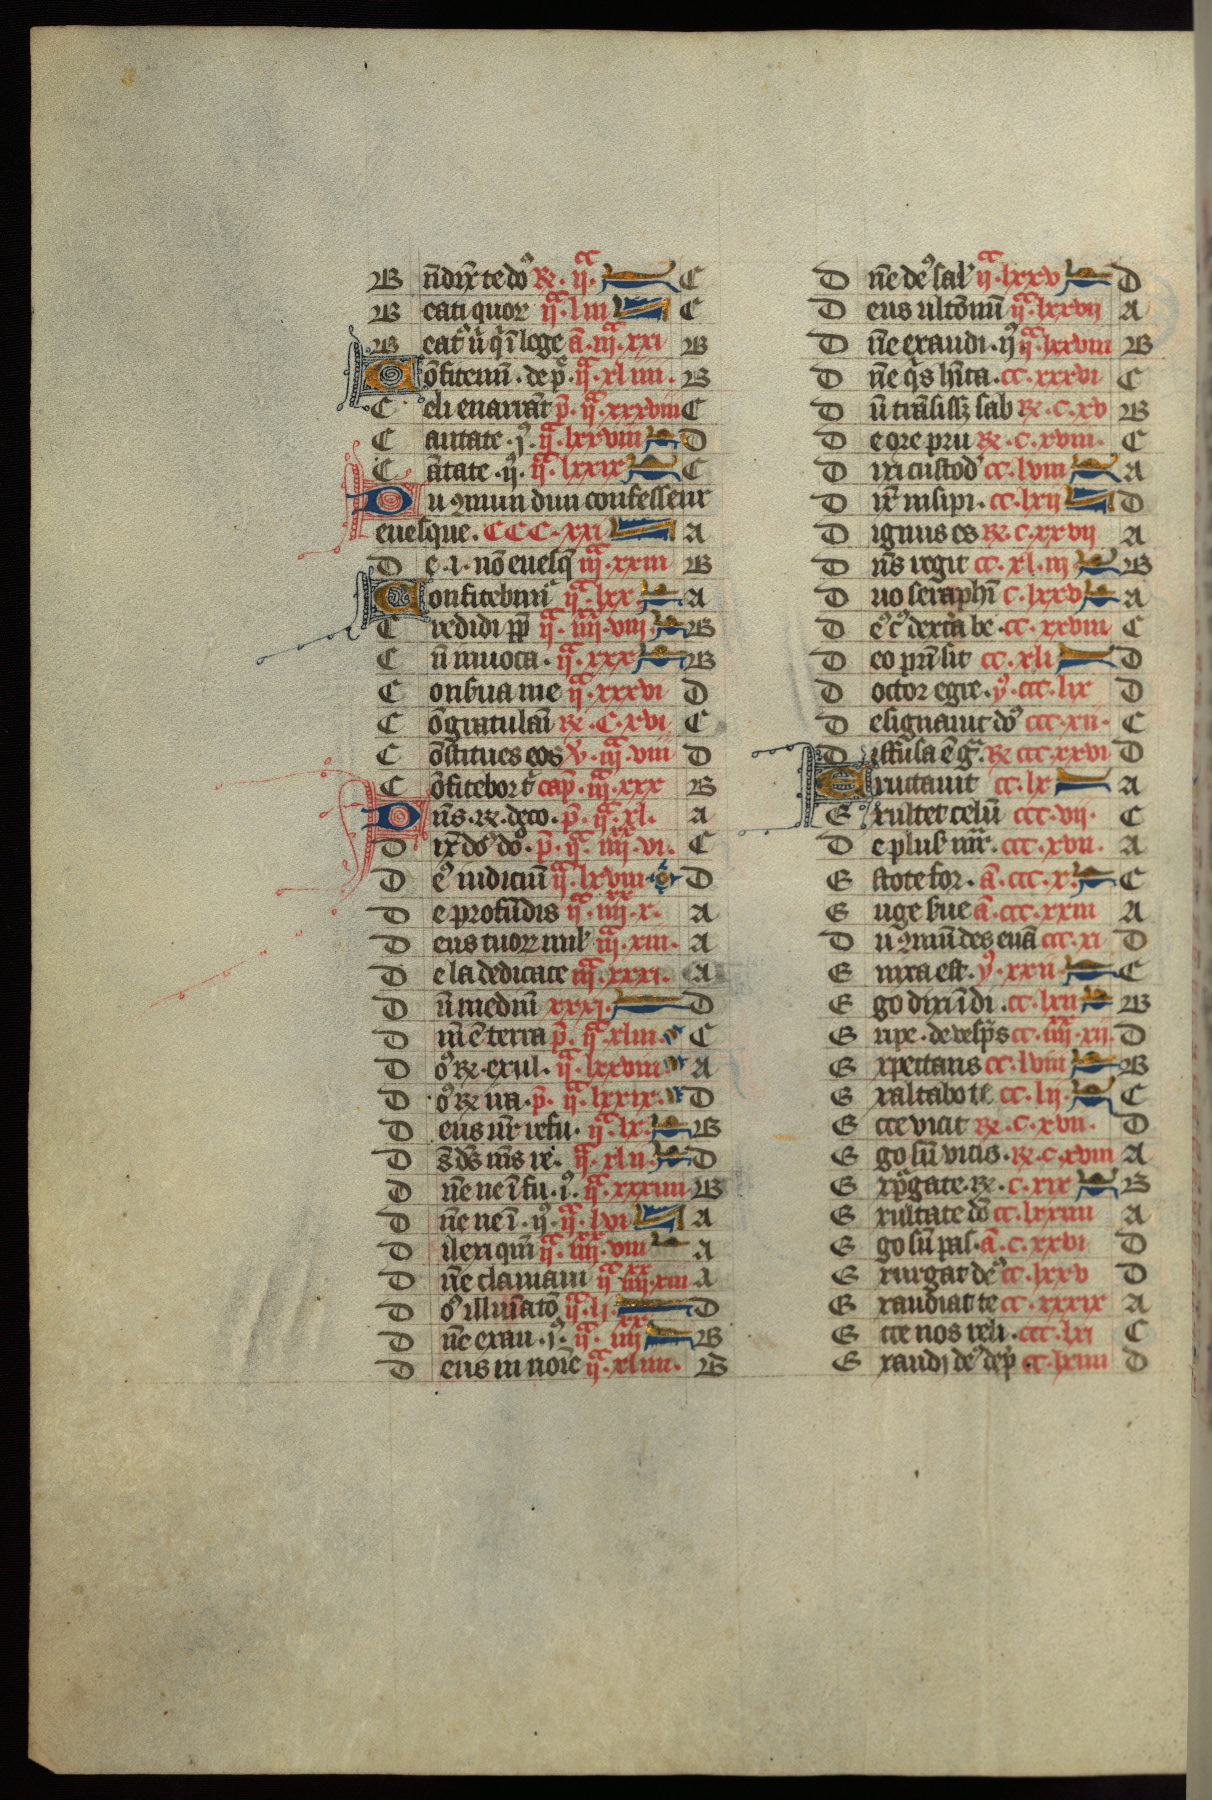 B n̄dix̄ te do᷒ R. ii. C
B eati quor ii. liii C
B eat᷒ ū q̄ ī lege ā. iii. xxi B
C ōfitemī. de p̄. ii. xliiii. B
C eli enarrāt p̄. ii. xxxviii C
C antate. i᷒. ii. lxxviii D
C ātate. ii᷒. ii. lxxix C
D u 9mun dun confesseur
euesque. CCC. xxi A
D e. i. nō euesq̄ iii. xxiii B
C onfitebim̄ ii. lxx A
C redidi pp̄ ii. iiii. viii. B
C ū inuoca. ii. xxx B
C onserua me ii. xxxvi D
C ōgratulaī R. C. xvi C
C ōstitues eos v̄. iii. viii D
C ōfitebor t᷒ cap̄. iii. xxx B
D n̄s. R. deco. p̄. ii. xl. A
D ix̄ do᷒ do᷒. p̄. ii. iiii. vi. C
D e᷒ iudiciū ii. lxviii D
D e profūdis ii. iiii. x. A
D eus tuoꝝ mil᷒ iii. xiii. A
D e la dedicace iii. xxxi. A
D ū mediū xxxi. D
D nī ē terra p̄. ii. xliii. C
D o᷒ R. exul. ii. lxxviii A
D o᷒ R ira. p̄. ii. lxxix. D
D eus nr̄ refu. ii. lx. B
D s̄ ds̄ m̄s re᷒. ii. xlii. D
D n̄e ne ī fu. i᷒. ii. xxxiiii B
D n̄e ne ī. ii᷒. ii. lvi A
D ilexi qm̄ ii. iiii. viii A
D n̄e clamaui ii iiii. xiii A
D o᷒ illuīatō ii. li. D
D n̄e exau. i᷒. ii. iiii B
D eus in noīe ii. xliiii. B
D n̄e de᷒ sal᷒ ii. lxxv D
D eus ultōnū ii. lxxvii A
D n̄e exaudi. ii᷒ ii. lxxviii B
D n̄e q̄s hīta. cc. xxxvi C
D ū trāsissꝫ sab R. c. xv B
D e ore pru R. c. xviii. C
D ixi custod᷒ cc. lviii A
D ix̄ insipi. cc. lxii D
D ignus es R. c. xxvii A
D n̄s regit cc. xl. iii B
D uo seraphī c. lxxv A
D e᷒ c᷒ dextā be. cc. xxviii C
D eo pn̄ sit cc. xli D
D octor egre. v᷒. ccc. lix D
D esignauit do᷒ ccc. xii. C
D iffusa ē ḡ. R ccc. xxvi D
E ructauit cc. lx A
E xultet celū ccc. vii. C
D e plus᷒ mr̄. ccc. xvii. A
E stote for. ā. ccc. x. C
E uge sue ā. ccc. xxiii A
D u 9mū des euā ccc. xi D
E nixa est. v᷒. xxii C
E go dixi dī. cc. lxii B
E ripe. de vesp̄s cc. iiii. xii. D
E xpectans cc. lviii B
E xaltabo te cc. lii C
E cce vicit R. c. xvii. D
E go sū vitis. R. c. xviii A
E xp̄gate. R. c. xix B
E xultate dō cc. lxxiiii A
E go sū pas. ā. c. xxvi D
E xurgat de᷒ cc. lxxv D
E xaudiat te cc. xxxix A
E cce nos reli. ccc. lxi C
E xaudi de᷒ dep̄. cc. lxiiii D